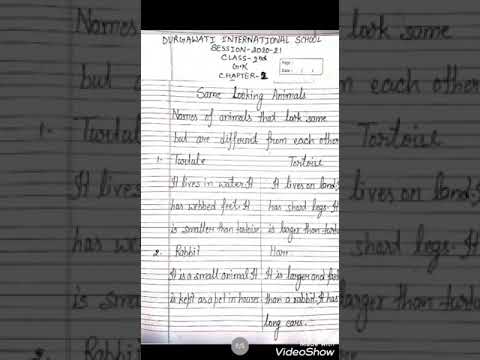 DURGAWATI INTERNATIONAL SCHOOL
SESSION-2020-21
CLASS-2nd
G.K
CHAPTER-2
Page :
Date : / /
Same Looking Animals
Names of animals that look same
but are different from each other
1- Turtule Tortoise
It lives in water. It It lives on land.
has webbed feet. It has short legs. It
is smaller than is larger than
2. Rabbit Harr
It is a small animal. It It is larger and
is kept as a pet in house. than a rabbit. It has
long ears.
1/5
Made with
VideoShow